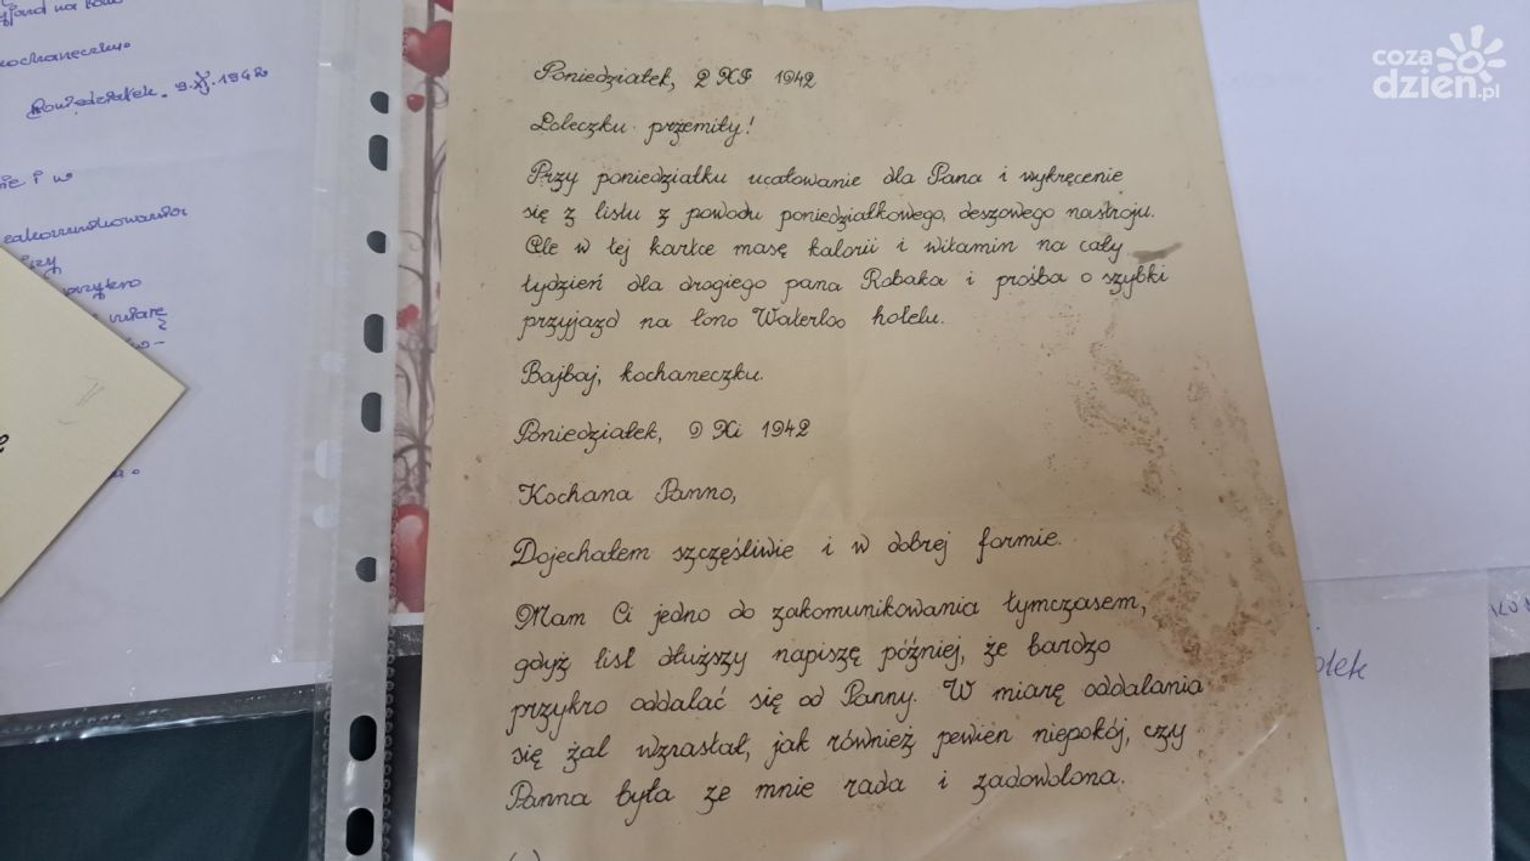 kochaneczku.
Poniedziałek. 9.XI.1942
nie i w
zakomunikowania
przykro
miarę
coza
dzien.pl
Poniedziałek, 2 XI 1942
Loleczku przemiły!
Przy poniedziałku ucałowanie dla Pana i wykręcenie
się z listu z powodu poniedziałkowego, deszowego nastroju.
Ale w tej kartce masę kalorii i witamin na cały
tydzień dla drogiego pana Robaka i prośba o szybki
przyjazd na łono Waterloo hotelu.
Bajbaj, kochaneczku.
Poniedziałek, 9 XI 1942
Kochana Panno,
Dojechałem szczęśliwie i w dobrej formie.
Mam Ci jedno do zakomunikowania tymczasem,
gdyż list dłuższy napiszę później, że bardzo
przykro oddalać się od Panny. W miarę oddalania
się żal wzrastał, jak również pewien niepokój, czy
Panna była ze mnie rada i zadowolona.
olek